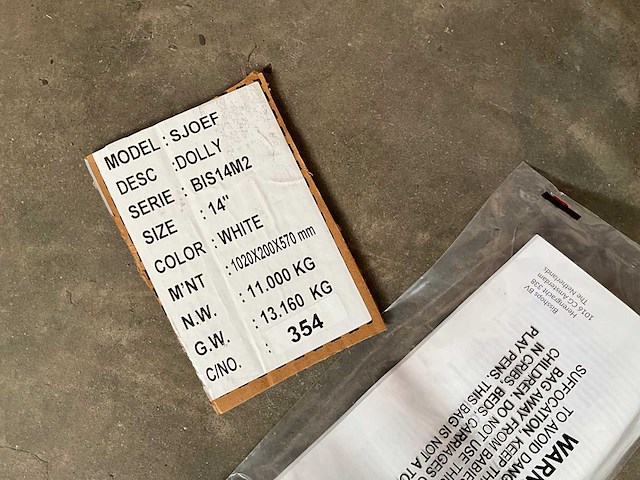 MODEL : SJOEF
DESC :DOLLY
SERIE : BIS14M2
SIZE : 14"
COLOR : WHITE
M'NT : 1020X200X570 mm
N.W. : 11.000 KG
G.W. : 13.160 KG
C/NO. : 354
Bishops BV
Herengracht 338
1016 CG Amsterdam
The Netherlands
WARN
TO AVOID DANG
SUFFOCATION, KEEP TH
BAG AWAY FROM BABIE
CHILDREN. DO NOT USE THI
IN CRIBS, BEDS, CARRIAGES O
PLAY PENS. THIS BAG IS NOT A TO